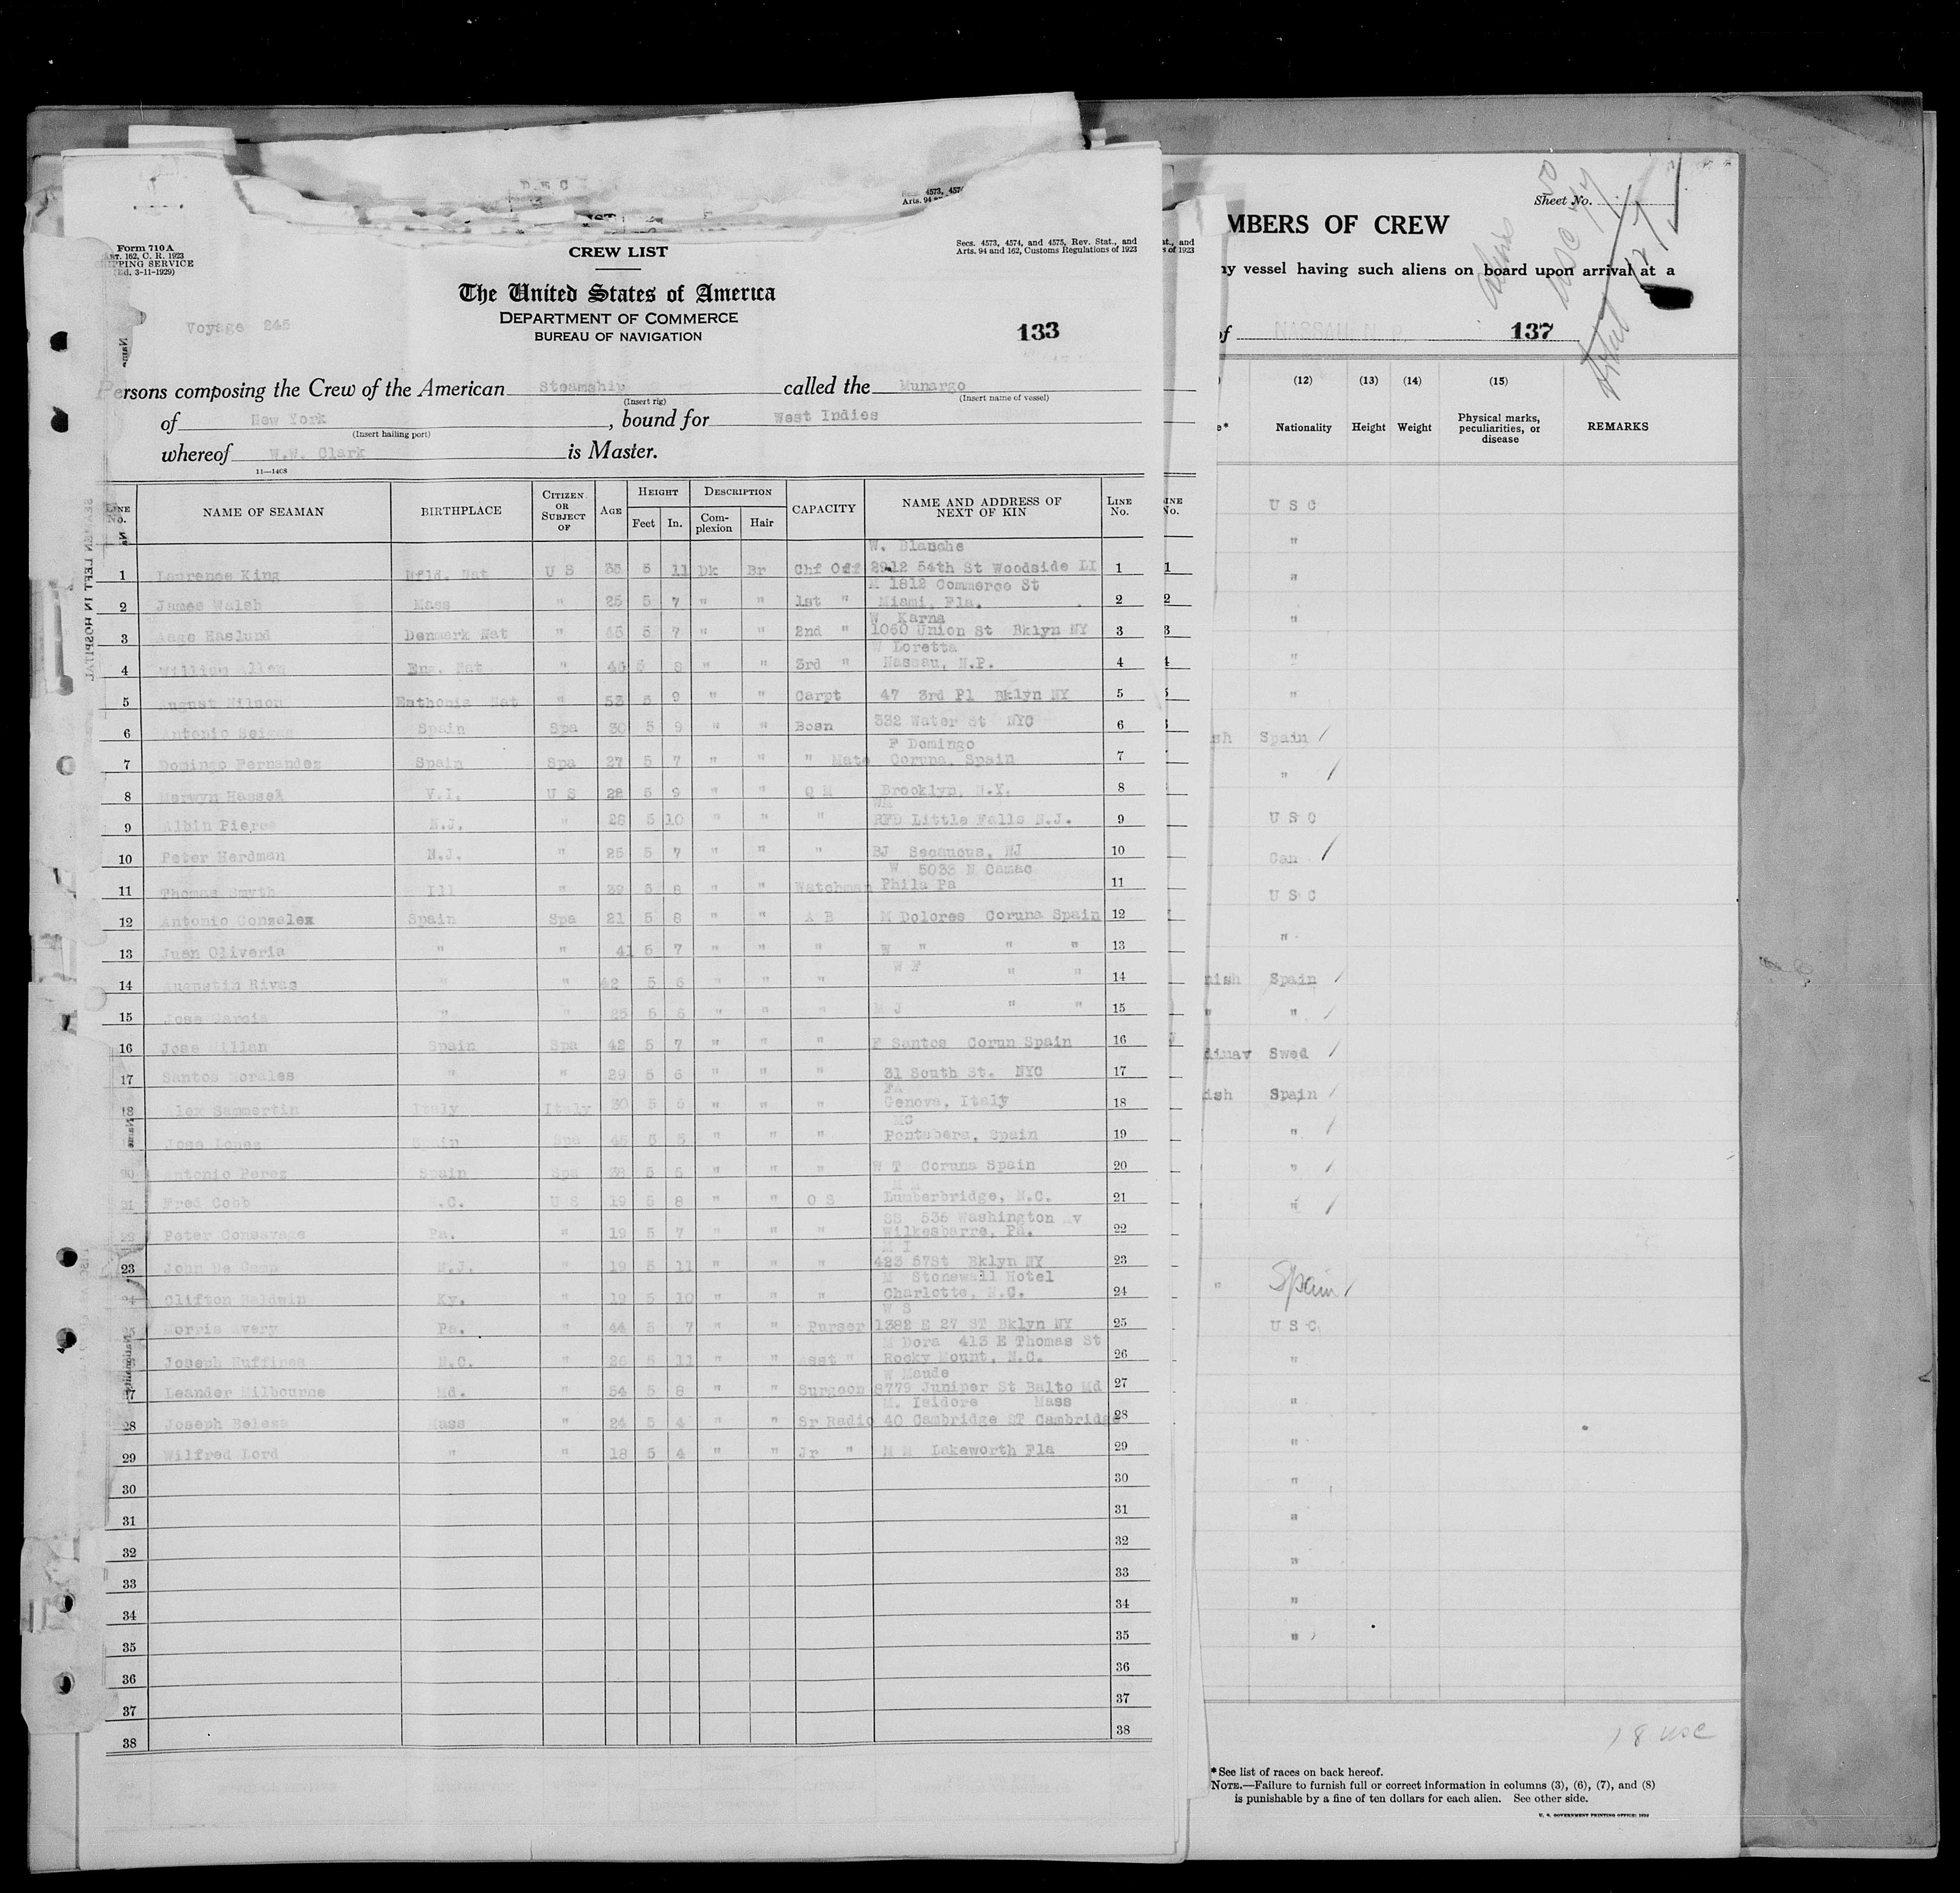 Form 710A
CREW LIST
Secs. 4573, 4574, and 4575, Rev. Stat., and
Arts. 94 and 162, Customs Regulations of 1923
The United States of America
DEPARTMENT OF COMMERCE
BUREAU OF NAVIGATION
Voyage 245
133
Persons composing the Crew of the American Steamship called the Munargo
(Insert rig) (Insert name of vessel)
of New York, bound for West Indies
(Insert hailing port)
whereof W.W. Clark is Master.
LINE No. NAME OF SEAMAN BIRTHPLACE CITIZEN OR SUBJECT OF AGE HEIGHT Feet In. DESCRIPTION Complexion Hair CAPACITY NAME AND ADDRESS OF NEXT OF KIN LINE No.
W. Blanche
1 Laurence King Nfld. Nat U S 35 5 11 Dk Br Chf Off 2912 54th St Woodside LI 1
M 1812 Commerce St
2 James Walsh Mass " 25 5 7 " " 1st " Miami, Fla. 2
W Karna
3 Aage Haslund Denmark Nat " 45 5 7 " " 2nd " 1060 Union St Bklyn NY 3
W Loretta
4 William Allen Eng. Nat " 46 5 8 " " 3rd " Nassau, N.P. 4
5 August Nilson Esthonia Nat " 53 5 9 " " Carpt 47 3rd Pl Bklyn NY 5
6 Antonio Spain Spa 30 5 9 " " Bosn 332 Water St NYC 6
F Domingo
7 Domingo Fernandez Spain Spa 27 5 7 " " " Mate Coruna, Spain 7
8 Merwyn V.I. U S 28 5 9 " " Q M Brooklyn, N.Y. 8
9 Albin Pierce N.J. " 28 5 10 " " " RFD Little Falls N.J. 9
10 Peter Herdman N.J. " 25 5 7 " " " BJ Secaucus, NJ 10
W 5033 N Camac
11 Thomas Smyth Ill " 39 5 8 " " Watchman Phila Pa 11
12 Antonio Gonzelez Spain Spa 21 5 8 " " A B M Dolores Coruna Spain 12
13 Juan Oliveria " " 41 5 7 " " " W " " " 13
W F " "
14 Augustin Rivas " " 42 5 6 " " " 14
15 Jose Garcia " " 25 5 6 " " " M J " " 15
16 Jose Millan Spain Spa 42 5 7 " " " F Santos Corun Spain 16
17 Santos Morales " " 29 5 6 " " " 31 South St. NYC 17
FA
18 Alex Sammertin Italy Italy 30 5 6 " " " Genova, Italy 18
MC
19 Jose Lopez Spain Spa 45 5 5 " " " Pontabera, Spain 19
20 Antonio Perez Spain Spa 38 5 5 " " " W T Coruna Spain 20
21 Fred Cobb .C. U S 19 5 8 " " O S Lumberbridge, N.C. 21
SS 536 Washington Av
22 Peter Consavage Pa. " 19 5 7 " " " Wilkesbarre, Pa. 22
M I
23 John De Camp N.J. " 19 5 11 " " " 423 57St Bklyn NY 23
M Stonewall Hotel
24 Clifton Baldwin Ky. " 19 5 10 " " " Charlotte, N.C. 24
W S
25 Morris Avery Pa. " 44 5 7 " " Purser 1382 E 27 ST Bklyn NY 25
M Dora 413 E Thomas St
26 Joseph Huffines N.C. " 26 5 11 " " Asst " Rocky Mount, N.C. 26
W Maude
27 Leander Milbourne Md. " 54 5 8 " " Surgeon 8779 Juniper St Balto Md 27
M. Isidore Mass
28 Joseph Mass " 24 5 4 " " Sr Radio 40 Cambridge ST Cambridge 28
29 Wilfred Lord " " 18 5 4 " " Jr " M M Lakeworth Fla 29
30 30
31 31
32 32
33 33
34 34
35 35
36 36
37 37
38 38
SEAMEN LEFT IN HOSPITAL
Sheet No.
MBERS OF CREW
ny vessel having such aliens on board upon arrival at a
of NASSAU N P 137
(12) (13) (14) (15)
Nationality Height Weight Physical marks, peculiarities, or disease REMARKS
U S C
"
"
"
"
"
Spain
"
U S C
Can
U S C
"
Spain
"
dinav Swed
ish Spain
"
"
"
" Spain
U S C
"
"
"
"
"
"
"
"
18 USC
*See list of races on back hereof.
NOTE.—Failure to furnish full or correct information in columns (3), (6), (7), and (8)
is punishable by a fine of ten dollars for each alien. See other side.